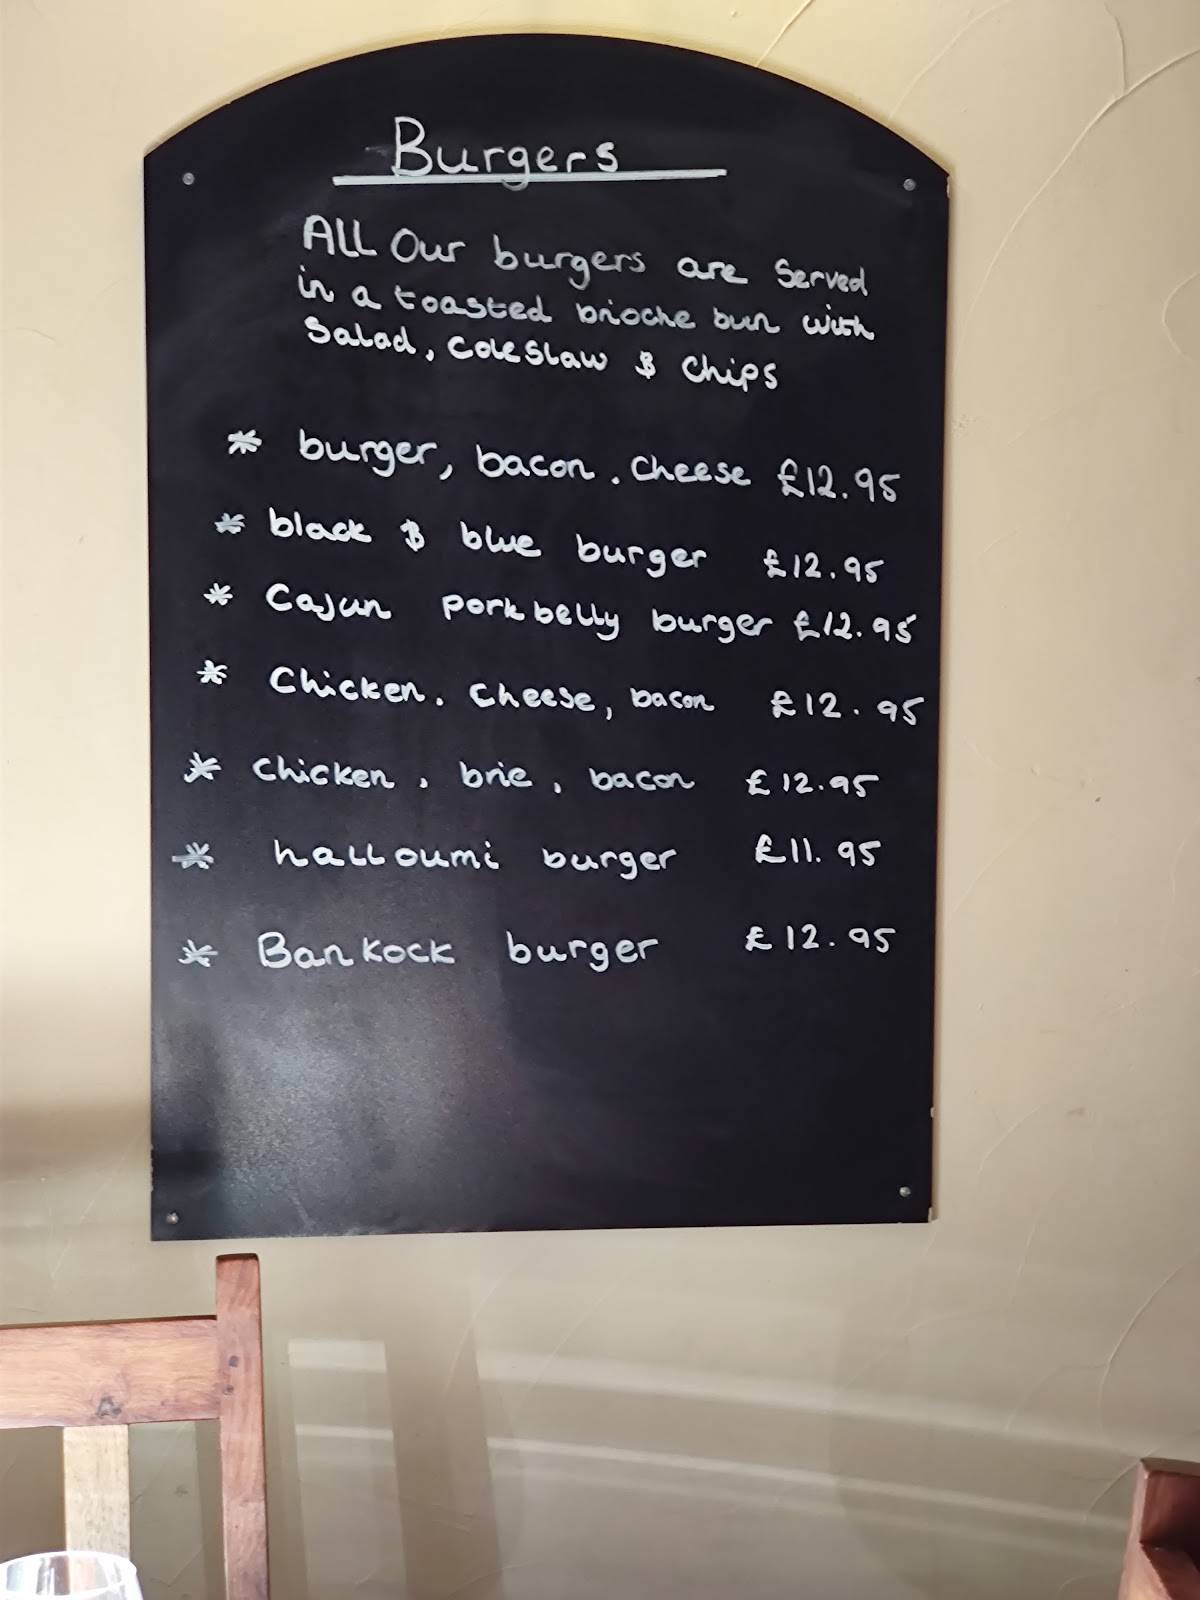 Burgers
ALL Our burgers are Served
in a toasted brioche bun with
Salad, Coleslaw & Chips
* burger, bacon. Cheese £12.95
* black & blue burger £12.95
* Cajun porkbelly burger £12.95
* Chicken. Cheese, bacon £12.95
* Chicken, brie, bacon £12.95
* halloumi burger £11.95
* Bankock burger £12.95